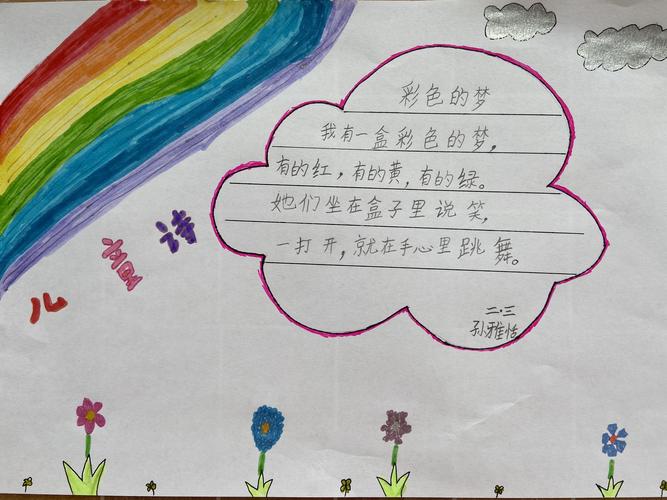 儿童诗
彩色的梦
我有一盒彩色的梦，
有的红，有的黄，有的绿。
她们坐在盒子里说笑，
一打开，就在手心里跳舞。
二·三
孙雅恬